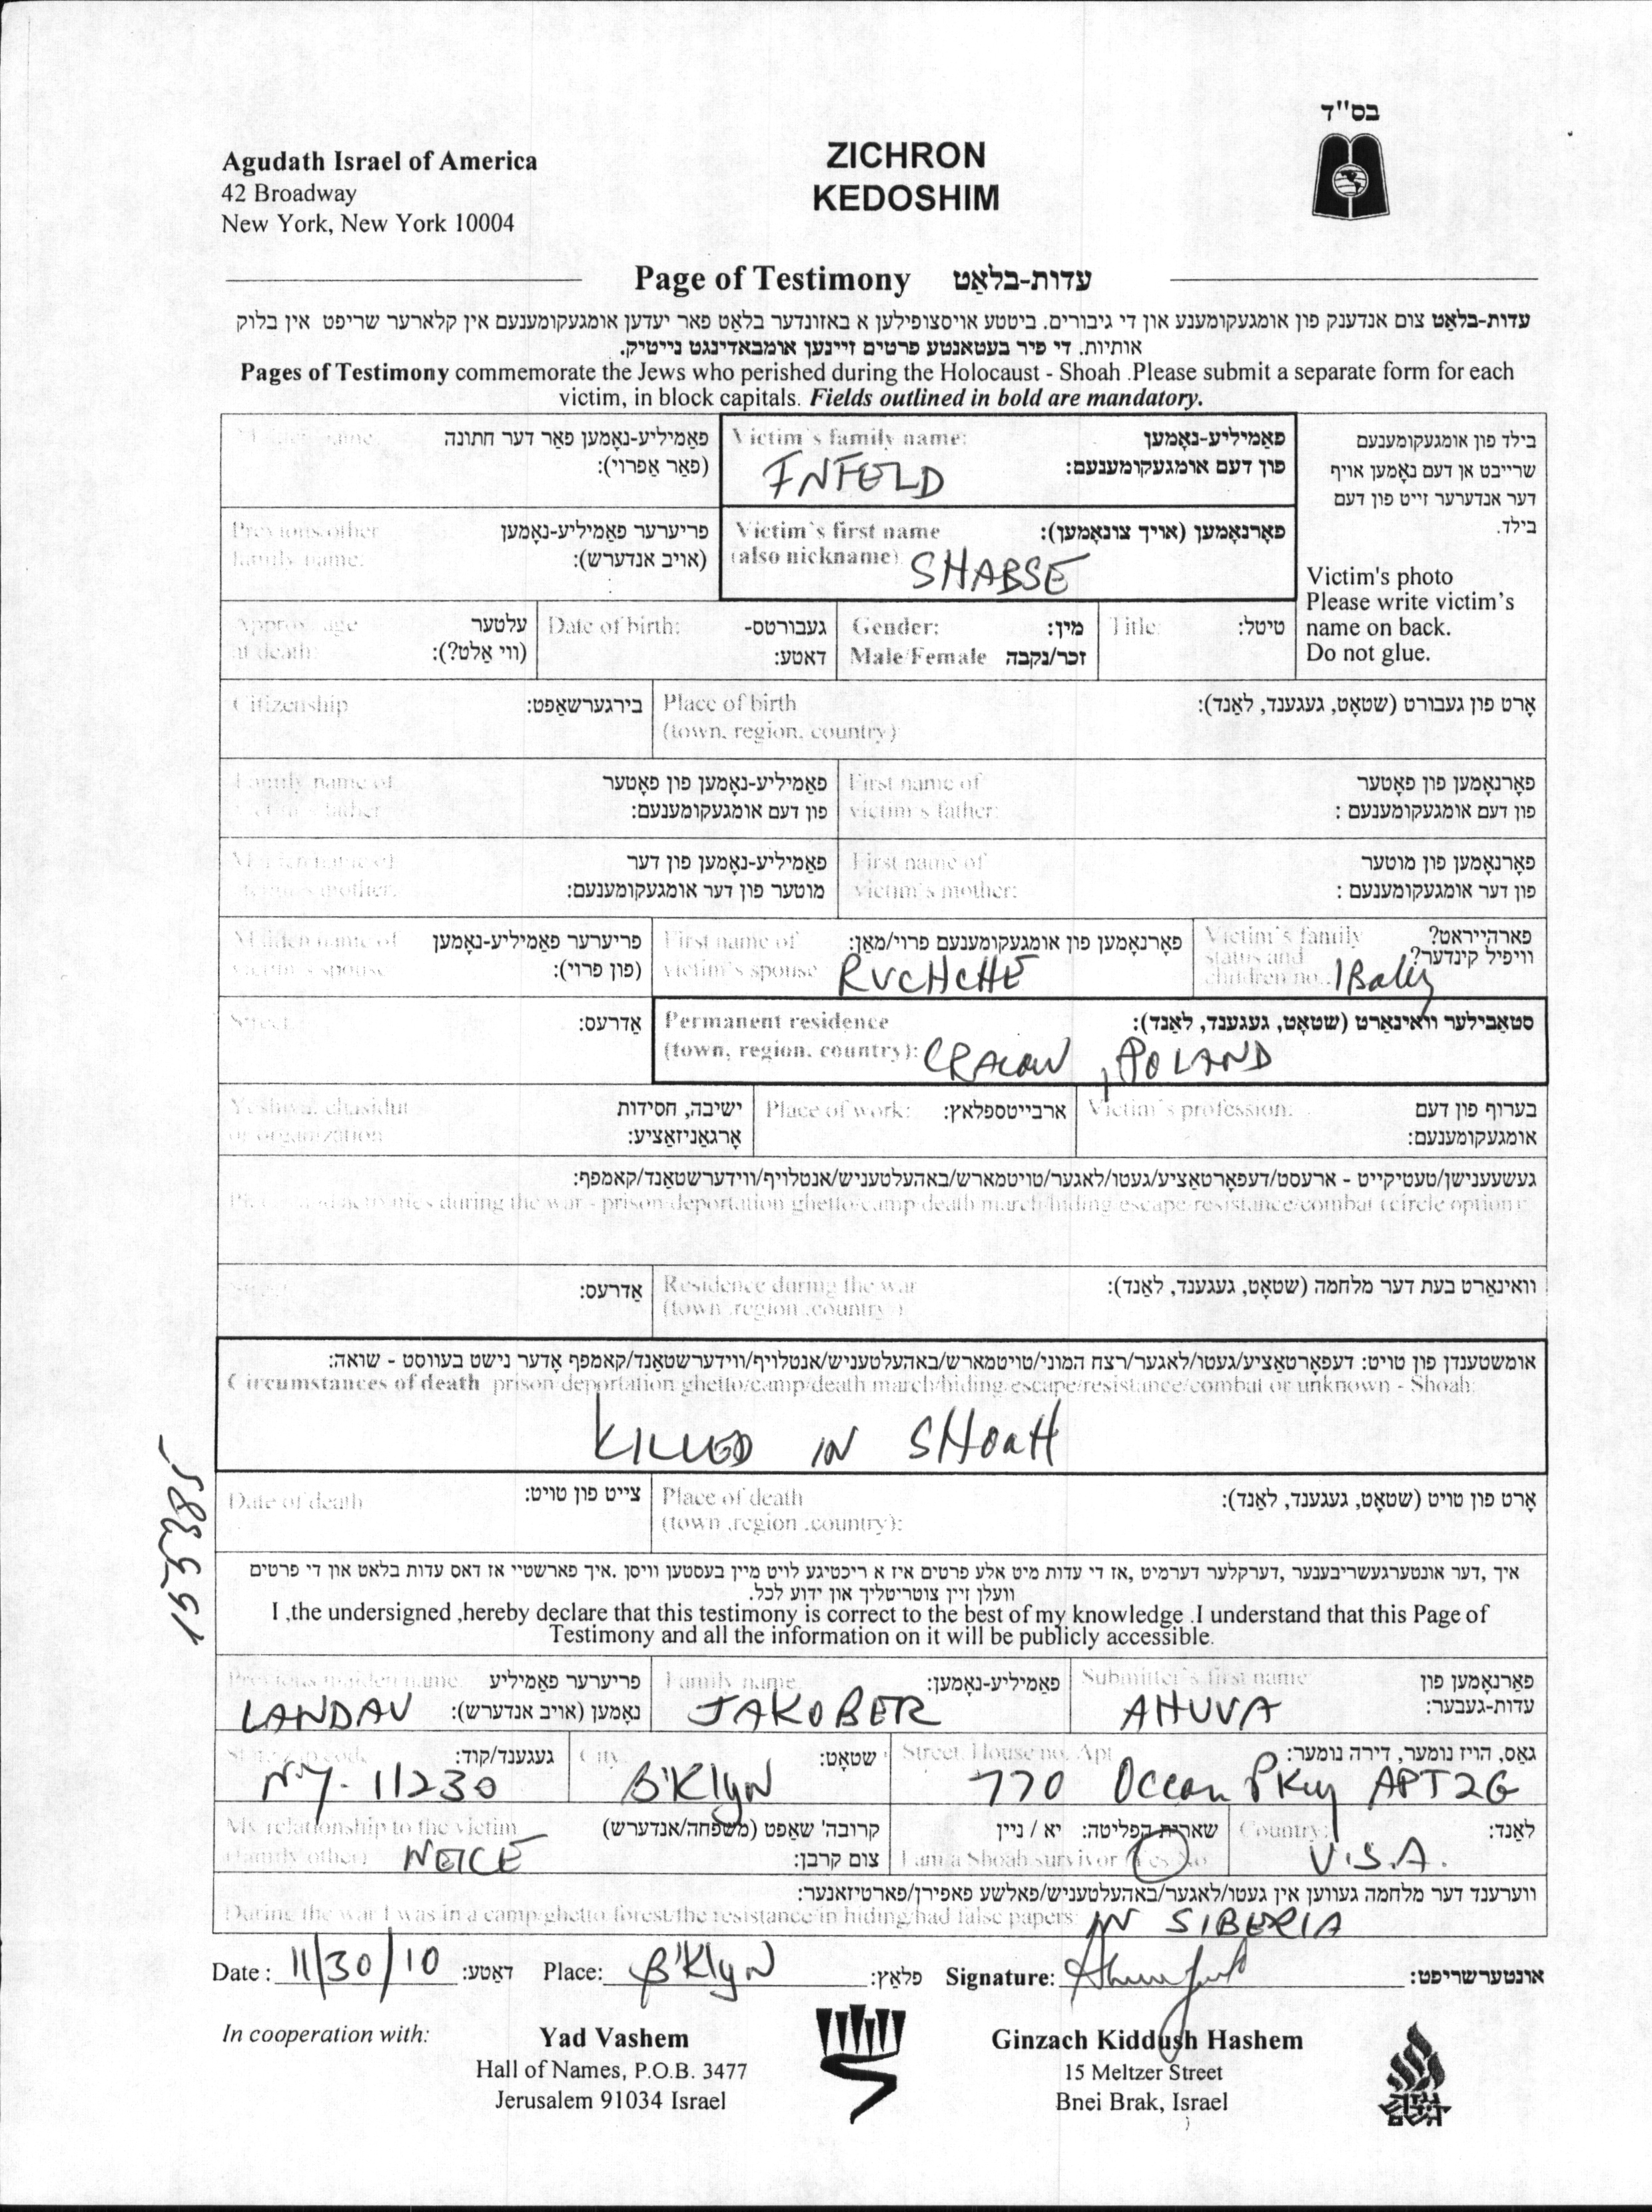 בס"ד
Agudath Israel of America
42 Broadway
New York, New York 10004
ZICHRON
KEDOSHIM
Page of Testimony עדות-בלאַט
עדות-בלאַט צום אנדענק פון אומגעקומענע און די גיבורים. ביטטע אויסצופילען א באזונדער בלאט פאר יעדען אומגעקומענעם אין קלארער שריפט אין בלוק
אותיות. די פיר בעטאנטע פרטים זיינען אומבאדינגט נייטיק.
Pages of Testimony commemorate the Jews who perished during the Holocaust - Shoah .Please submit a separate form for each
victim, in block capitals. Fields outlined in bold are mandatory.
name: פאַמיליע-נאָמען פאַר דער חתונה
(פאַר אַפרוי):
Victim's family name: פאַמיליע-נאָמען
פון דעם אומגעקומענעם:
INFELD
בילד פון אומגעקומענעם
שרייבט אן דעם נאָמען אויף
דער אנדערער זייט פון דעם
בילד.
Victim's photo
Please write victim's
name on back.
Do not glue.
Previous/other פריערער פאַמיליע-נאָמען
family name: (אויב אנדערש):
Victim's first name פאָרנאָמען (אויך צונאָמען):
(also nickname) SHABSE
Approx. age עלטער
at death: (ווי אַלט?):
Date of birth: געבורטס-
דאטע:
Gender: מין:
Male/Female זכר/נקבה
Title: טיטל:
Citizenship בירגערשאַפט:
Place of birth אָרט פון געבורט (שטאָט, געגענד, לאַנד):
(town, region, country)
Family name of פאַמיליע-נאָמען פון פאָטער
father פון דעם אומגעקומענעם:
First name of פאָרנאָמען פון פאטער
victim's father: פון דעם אומגעקומענעם :
Maiden name of פאַמיליע-נאָמען פון דער
mother: מוטער פון דער אומגעקומענעם:
First name of פאָרנאָמען פון מוטער
victim's mother: פון דער אומגעקומענעם :
Maiden name of פריערער פאַמיליע-נאָמען
victim's spouse (פון פרוי):
First name of פאָרנאָמען פון אומגעקומענעם פרוי/מאַן:
victim's spouse RUCHCHE
Victim's family פארהייראט?
status and וויפיל קינדער?
children no.. 1 Baby
Street אַדרעס:
Permanent residence סטאַבילער וואינאַרט (שטאָט, געגענד, לאַנד):
(town, region, country): CRACOW, POLAND
Yeshiva, chasidut ישיבה, חסידות
or organization אָרגאַניזאַציע:
Place of work: ארבייטספלאץ:
Victim's profession: בערוף פון דעם
אומגעקומענעם:
געשעענישן/טעטיקייט - ארעסט/דעפאָרטאַציע/געטו/לאגער/טויטמארש/באהעלטעניש/אנטלויף/ווידערשטאַנד/קאמפף:
activities during the war - prison/deportation ghetto/camp death march/hiding/escape/resistance/combat (circle option):
אַדרעס:
Residence during the war וואינאַרט בעת דער מלחמה (שטאָט, געגענד, לאַנד):
(town ,region ,country ):
אומשטענדן פון טויט: דעפאָרטאַציע/געטו/לאגער/רצח המוני/טויטמארש/באהעלטעניש/אנטלויף/ווידערשטאַנד/קאמפף אָדער נישט בעווסט - שואה:
Circumstances of death prison/deportation ghetto/camp/death march/hiding/escape/resistance/combat or unknown - Shoah:
KILLED IN SHOAH
Date of death צייט פון טויט:
Place of death אָרט פון טויט (שטאָט, געגענד, לאַנד):
(town ,region ,country):
155385
איך ,דער אונטערגעשריבענער ,דערקלער דערמיט ,אז די עדות מיט אלע פרטים איז א ריכטיגע לויט מיין בעסטען וויסן .איך פארשטיי אז דאס עדות בלאט און די פרטים
וועלן זיין צוטריטליך און ידוע לכל.
I ,the undersigned ,hereby declare that this testimony is correct to the best of my knowledge .I understand that this Page of
Testimony and all the information on it will be publicly accessible.
Previous/maiden name: פריערער פאַמיליע
LANDAU נאָמען (אויב אנדערש):
Family name פאַמיליע-נאָמען:
JAKOBER
Submitter's first name פאַרנאָמען פון
AHUVA עדות-געבער:
State/zip code געגענד/קוד:
N.Y. 11230
City שטאָט:
B'Klyn
Street, House no, Apt גאַס, הויז נומער, דירה נומער:
770 Ocean Pkwy APT 2G
My relationship to the victim קרובה' שאַפט (משפחה/אנדערש)
(family/other) NEICE צום קרבן:
שארית הפליטה: יא / ניין
I am a Shoah survivor Yes/No
Country: לאַנד:
U.S.A.
ווערענד דער מלחמה געווען אין געטו/לאגער/באהעלטעניש/פאלשע פאפירן/פארטיזאנער:
During the war I was in a camp/ghetto/forest/the resistance/in hiding/had false papers: IN SIBERIA
Date : 11/30/10 דאַטע: Place: B'Klyn פלאַץ: Signature: אונטערשריפט:
In cooperation with:
Yad Vashem
Hall of Names, P.O.B. 3477
Jerusalem 91034 Israel
Ginzach Kiddush Hashem
15 Meltzer Street
Bnei Brak, Israel